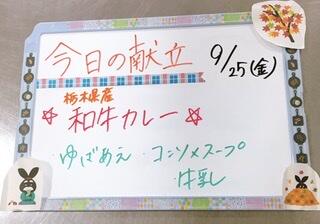 今日の献立
9/25(金)
栃木県産
☆和牛カレー☆
・ゆばあえ ・コンソメスープ
・牛乳